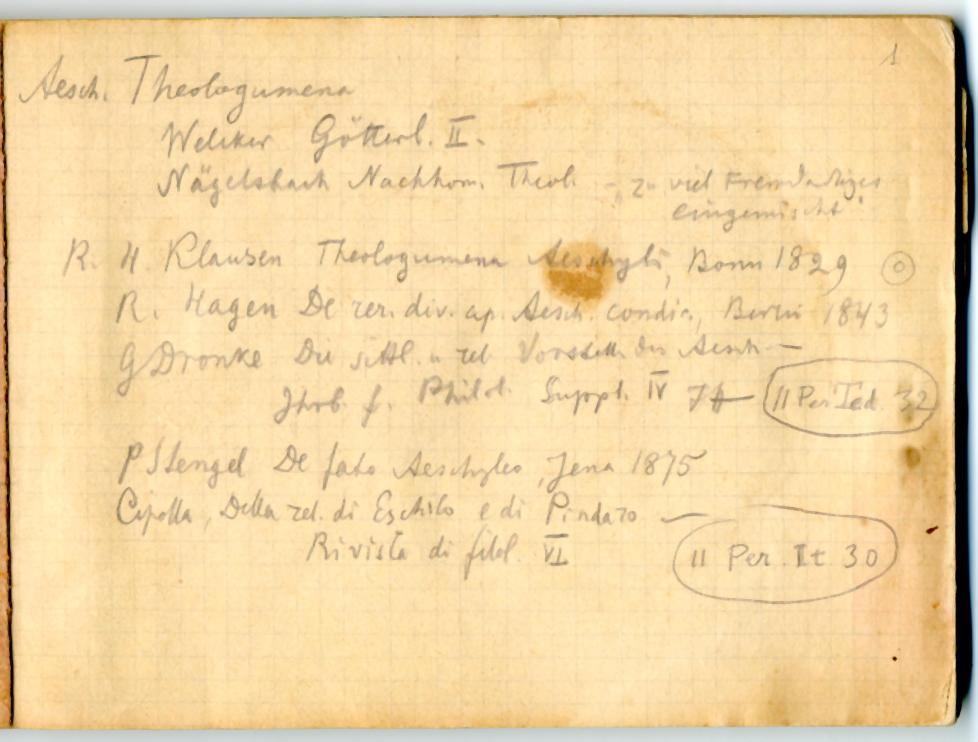 1
Aesch. Theologumena
Welcker Götterl. II.
Nägelsbach Nachhom. Theol. - „zu viel Fremdartiges
eingemischt"
R. H. Klausen Theologumena Aeschyli, Bonn 1829
R. Hagen De rer. div. ap. Aesch. condic., Berlin 1843
G Dronke Die sittl. u rel. Vorstell. des Aesch —
Jhrb. f. Philol. Suppl. IV II Per Ted. 32
P Stengel De fato Aeschyleo, Jena 1875
Cipolla, Della rel. di Eschilo e di Pindaro —
Rivista di filol. VI II Per. It 30